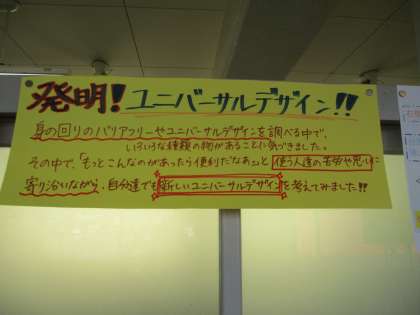 発明!ユニバーサルデザイン!!
身の回りのバリアフリーやユニバーサルデザインを調べる中で、
いろいろな種類の物があることに気づきました。
その中で、「もっとこんなのがあったら便利だなぁっと使う人達の苦労や思いに
寄り沿いながら、自分達でも新しいユニバーサルデザインを考えてみました!!